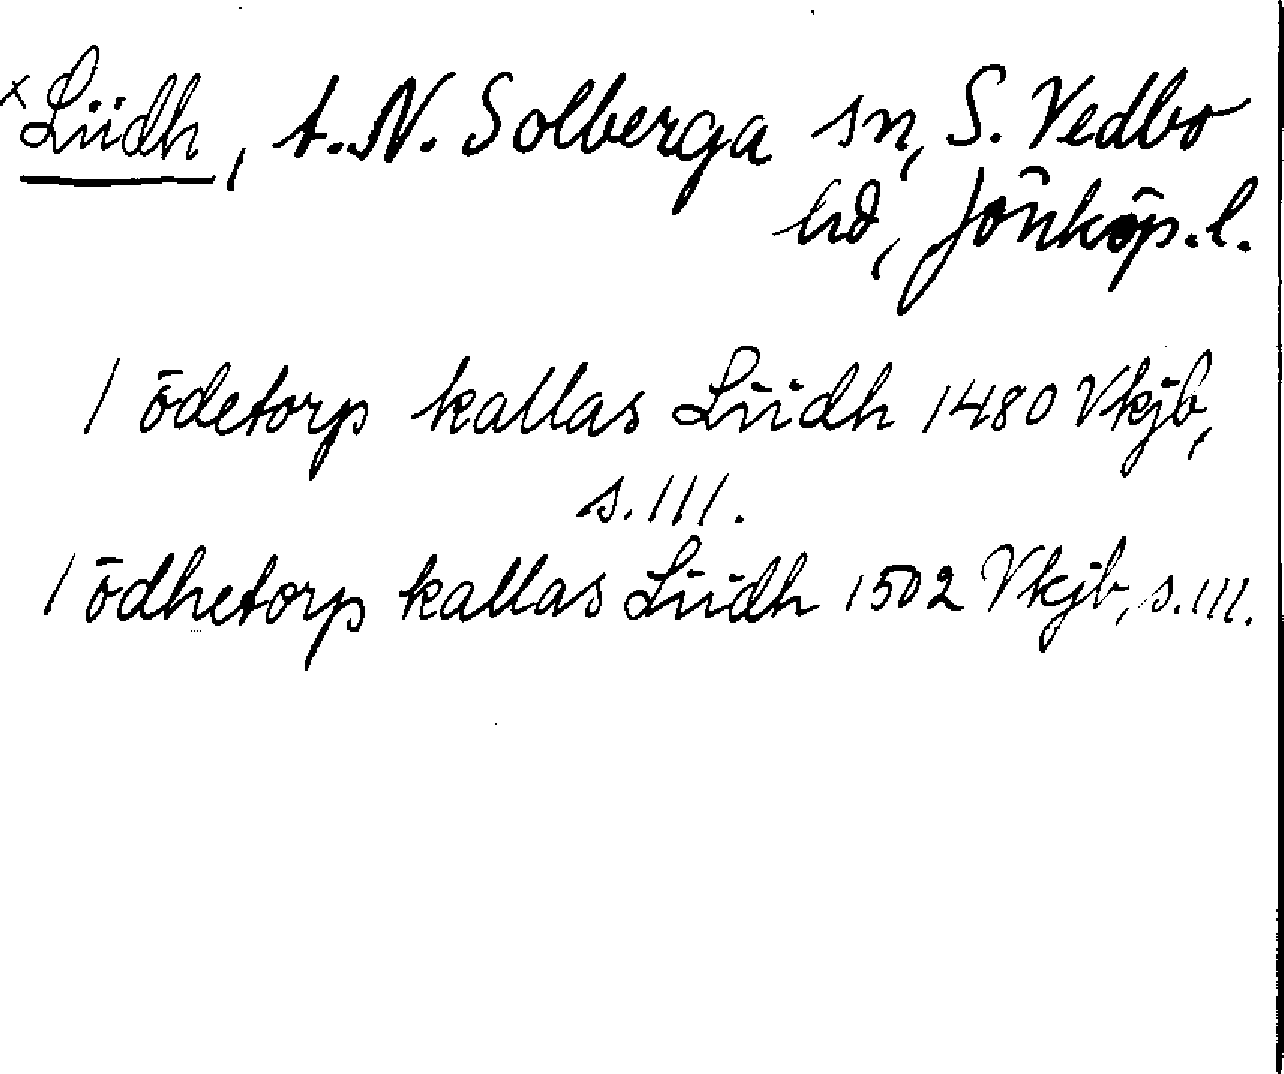 x Liidh, t. N. Solberga sn, S. Vedbo
hd, Jönköp. l.
1 ödetorp kallas Liidh 1480 Vkjb,
s. 111.
1 ödhetorp kallas Liidh 1502 Vkjb, s. 111.